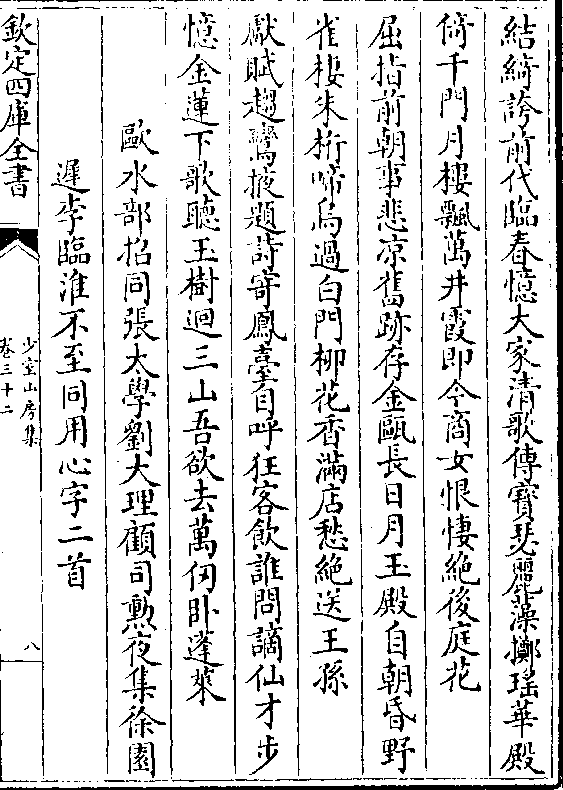 結綺誇前代臨春憶大家清歌傳寶瑟麗藻擲瑶華殿
倚千門月樓飄萬井霞即今商女恨悽絶後庭花
屈指前朝事悲凉舊跡存金甌長日月玉殿自朝昏野
雀棲朱桁啼烏過白門柳花香滿店愁絶送王孫
獻賦趨鸞掖題詩寄鳳臺自呼狂客飲誰問謫仙才步
憶金蓮下歌聽玉樹迴三山吾欲去萬仞卧蓬萊
歐水部招同張太學劉大理顧司勲夜集徐園
遲李臨淮不至同用心字二首
欽定四庫全書
少室山房集
卷三十二
八